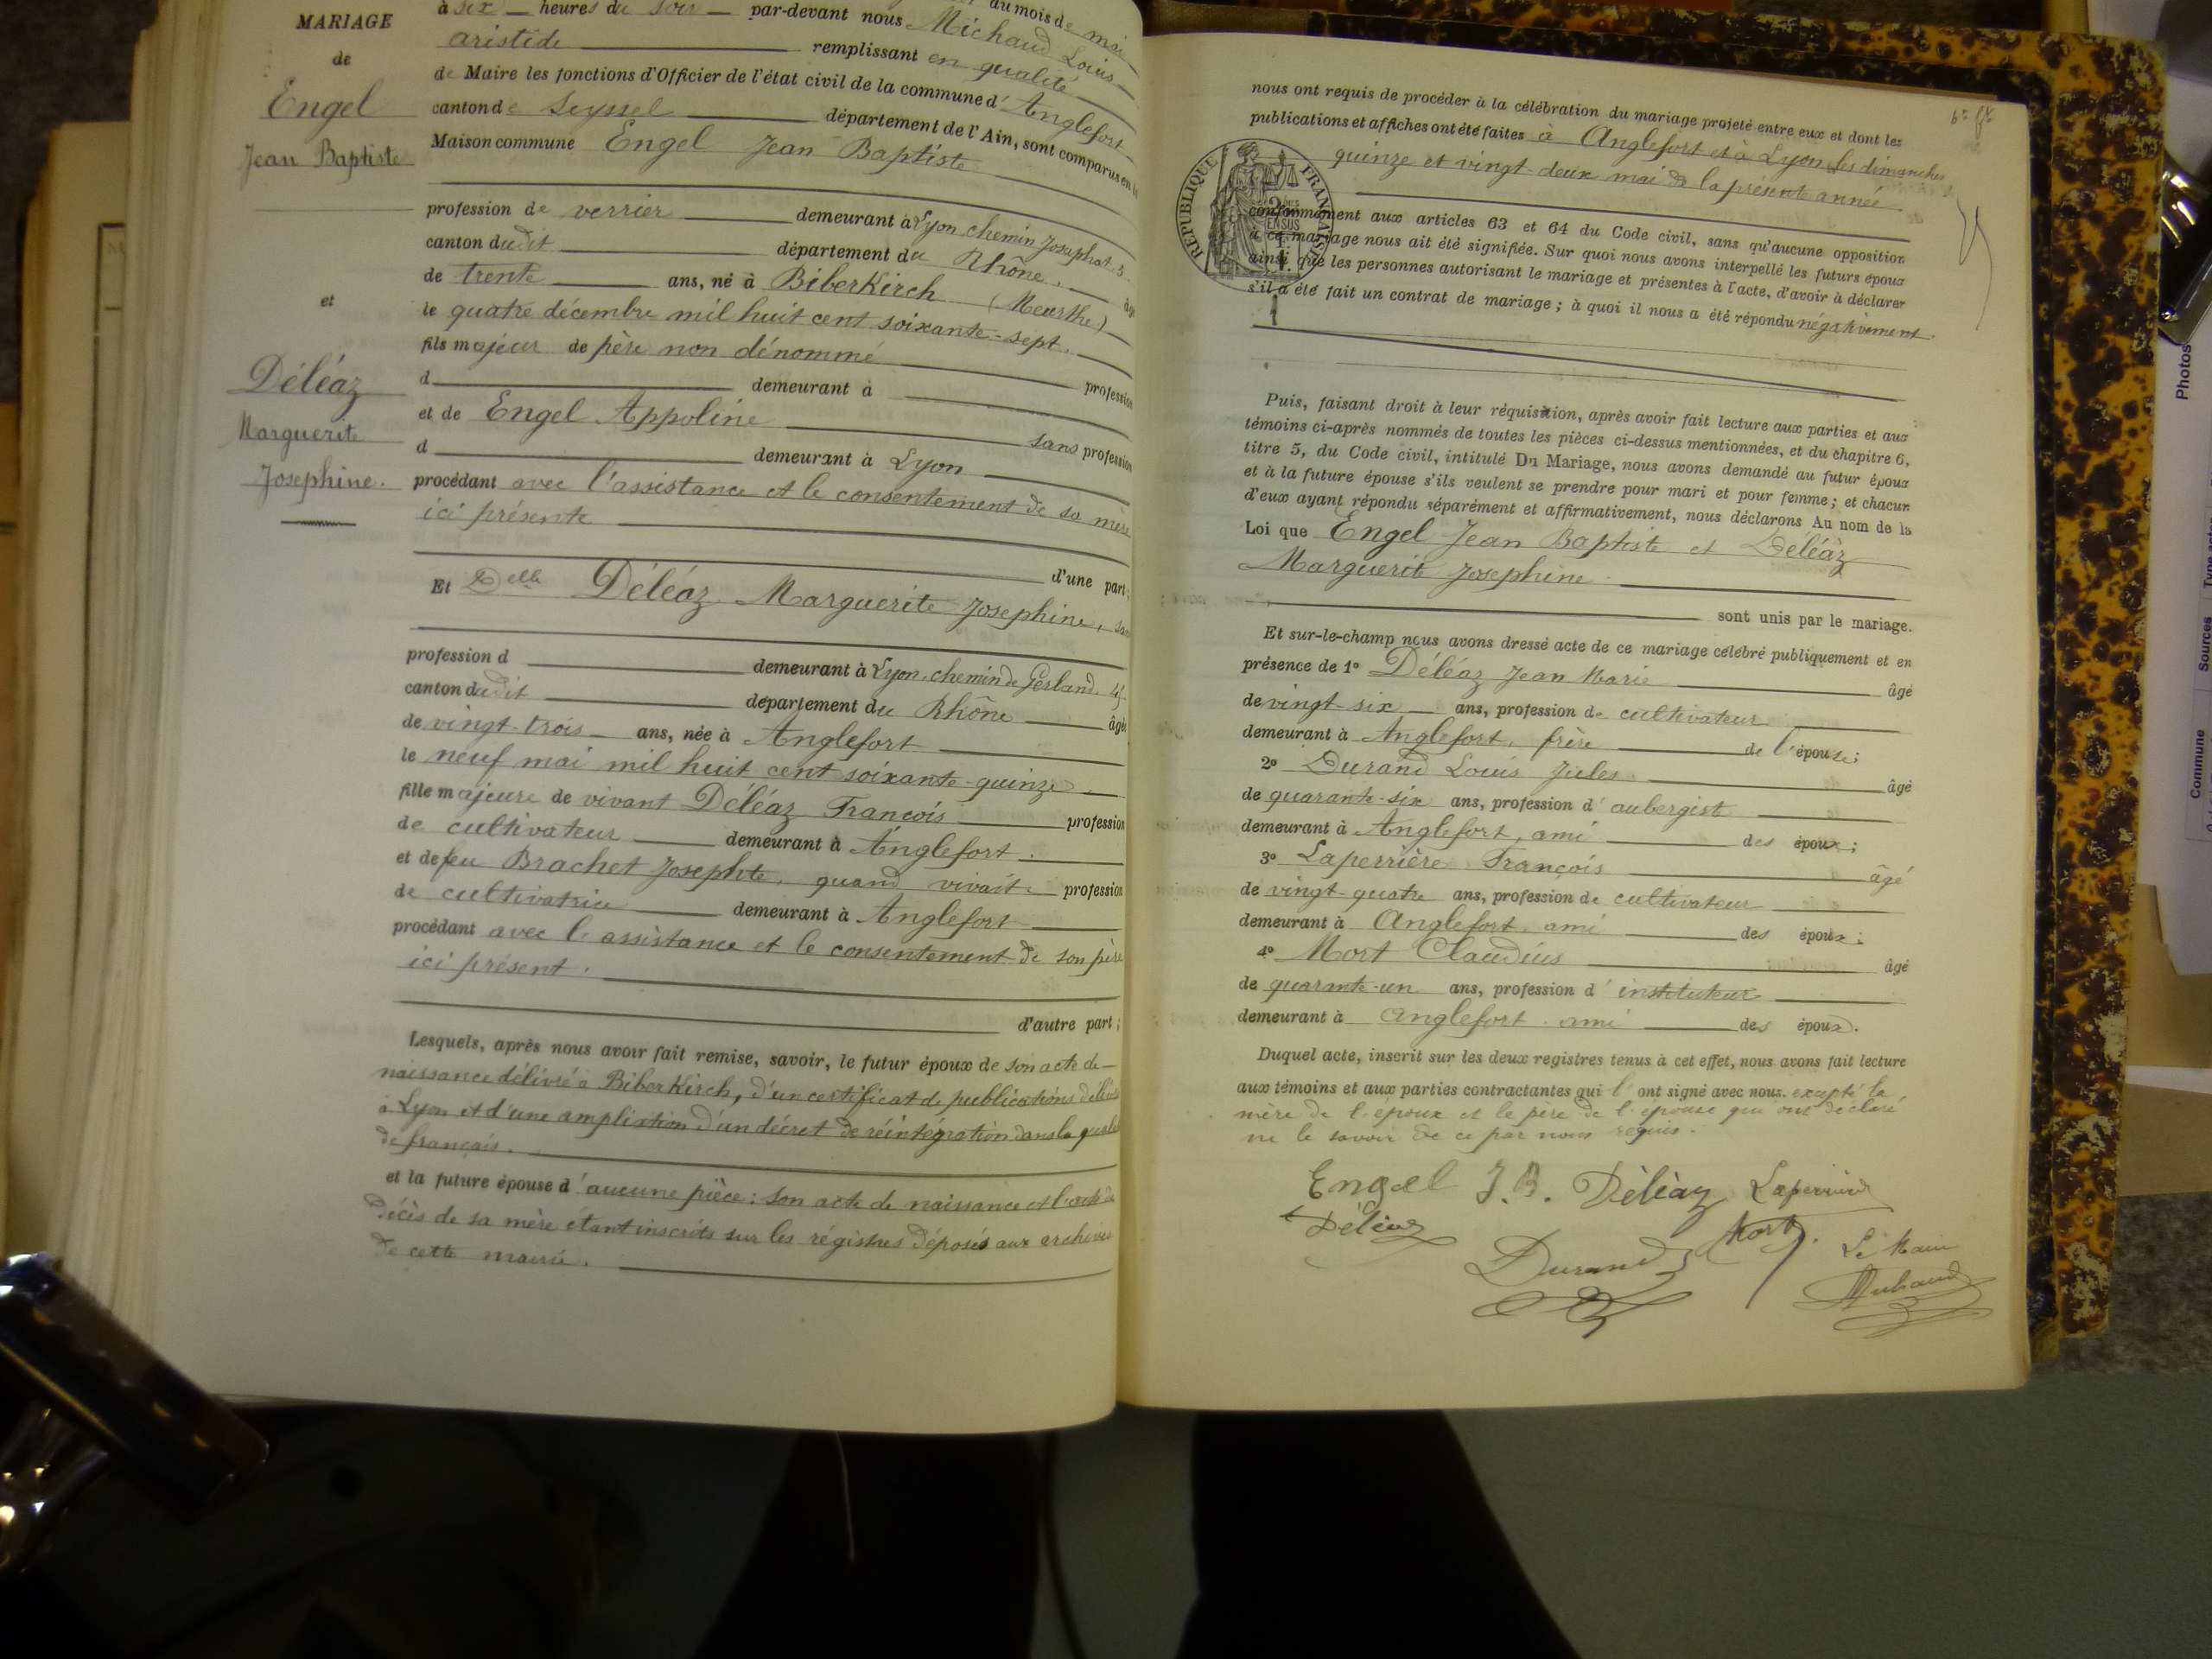 MARIAGE
de
Engel
Jean Baptiste
et
Déléaz
Marguerite
Josephine.
du mois de mai
à six heures du soir par-devant nous Michaud Louis
aristide remplissant en qualité
de Maire les fonctions d'Officier de l'état civil de la commune d'Anglefort
canton de Seyssel département de l'Ain, sont comparus en la
Maison commune Engel Jean Baptiste
profession de verrier demeurant à Lyon chemin Josaphat
canton dudit département du Rhône, âgé
de trente ans, né à Biberkirch (Meurthe)
le quatre décembre mil huit cent soixante-sept.
fils majeur de père non dénommé profession
d demeurant à
et de Engel Appoline sans profession
d demeurant à Lyon
procédant avec l'assistance et le consentement de sa mère
ici présente
d'une part;
Et Delle Déléaz Marguerite Josephine, sans
profession d demeurant à Lyon, chemin de Gerland
canton dudit département du Rhône âgée
de vingt-trois ans, née à Anglefort
le neuf mai mil huit cent soixante-quinze
fille majeure de vivant Déléaz François profession
de cultivateur demeurant à Anglefort.
et de feu Brachet Josephte, quand vivait profession
de cultivatrice demeurant à Anglefort
procédant avec l'assistance et le consentement de son père
ici présent.
d'autre part;
Lesquels, après nous avoir fait remise, savoir, le futur époux de son acte de
naissance délivré à Biberkirch, d'un certificat de publications délivré
à Lyon et d'une ampliation d'un décret de réintégration dans la qualité
de français.
et la future épouse d'aucune pièce: son acte de naissance et l'acte de
décès de sa mère étant inscrits sur les régistres déposés aux archives
de cette mairie.
nous ont requis de procéder à la célébration du mariage projeté entre eux et dont les
publications et affiches ont été faites à Anglefort et à Lyon les dimanches
quinze et vingt-deux mai de la présente année
RÉPUBLIQUE FRANÇAISE
conformément aux articles 63 et 64 du Code civil, sans qu'aucune opposition
à ce mariage nous ait été signifiée. Sur quoi nous avons interpellé les futurs époux
ainsi que les personnes autorisant le mariage et présentes à l'acte, d'avoir à déclarer
s'il a été fait un contrat de mariage; à quoi il nous a été répondu négativement.
Puis, faisant droit à leur réquisition, après avoir fait lecture aux parties et aux
témoins ci-après nommés de toutes les pièces ci-dessus mentionnées, et du chapitre 6,
titre 5, du Code civil, intitulé Du Mariage, nous avons demandé au futur époux
et à la future épouse s'ils veulent se prendre pour mari et pour femme; et chacun
d'eux ayant répondu séparément et affirmativement, nous déclarons Au nom de la
Loi que Engel Jean Baptiste et Déléaz
Marguerite Josephine
sont unis par le mariage.
Et sur-le-champ nous avons dressé acte de ce mariage célébré publiquement et en
présence de 1° Déléaz Jean Marie âgé
de vingt-six ans, profession de cultivateur
demeurant à Anglefort, frère de l'épouse;
2° Durand Louis Jules. âgé
de quarante-six ans, profession d'aubergiste
demeurant à Anglefort, ami des époux;
3° Laperrière François âgé
de vingt-quatre ans, profession de cultivateur
demeurant à Anglefort, ami des époux;
4° Mort Claudius âgé
de quarante-un ans, profession d'instituteur
demeurant à Anglefort. ami des époux.
Duquel acte, inscrit sur les deux registres tenus à cet effet, nous avons fait lecture
aux témoins et aux parties contractantes qui l'ont signé avec nous. excepté la
mère de l'époux et le père de l'épouse qui ont déclaré
ne le savoir de ce par nous requis.
Engel J.B. Déléaz Laperrière
Déléaz
Durand Mort. Le Maire
Michaud
Photos
Type acte
Sources
Commune